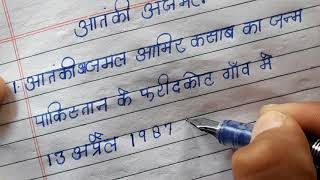 आतंकी अजमल
1. आतंकी अजमल आमिर कसाब का जन्म
पाकिस्तान के फरीदकोट गाँव मे
13 अप्रैल 1987